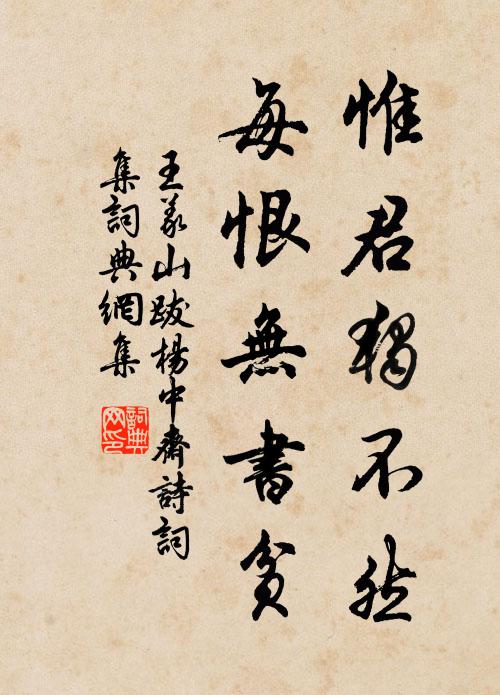 惟君獨不然
每恨無書貧
王義山跋楊中齋詩詞
集詞典網集
詞典
网印